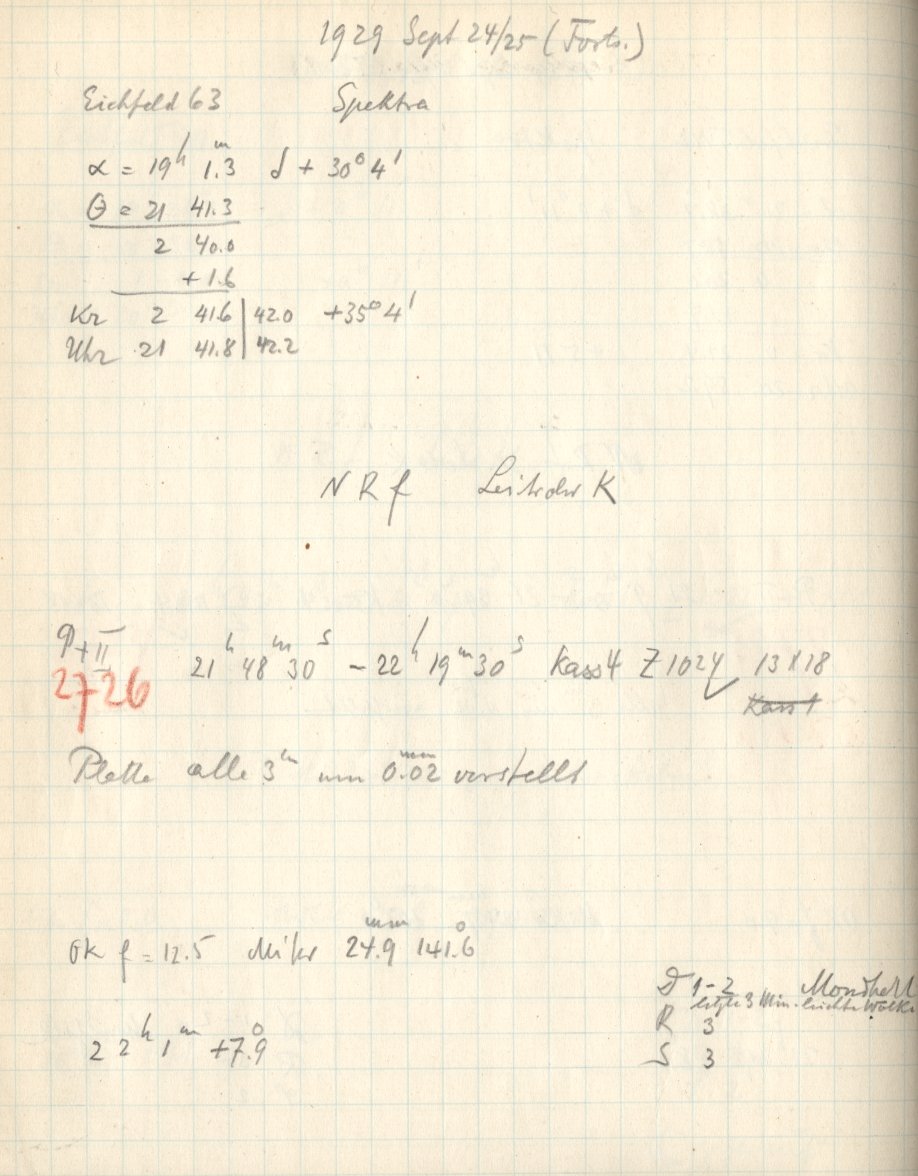 1929 Sept 24/25 (Forts.)
Eichfeld 63 Spektra
α = 19h 1.3m δ + 30° 4'
θ = 21 41.3
2 40.0
+ 1.6
Kr 2 41.6 | 42.0 +35° 4'
Uhr 21 41.8 | 42.2
N R f K
P + II
2726
21h 48m 30s – 22h 19m 30s Kass 4 Z 1024 13 X 18
Kass 1
Platte alle 3m um 0.02mm verstellt
OK f = 12.5 Mikr 24.9mm 141.6°
D 1-2 Mondhell
letzte 3 Min. leichte Wolke
R 3
22h 1m +7.9°
S 3